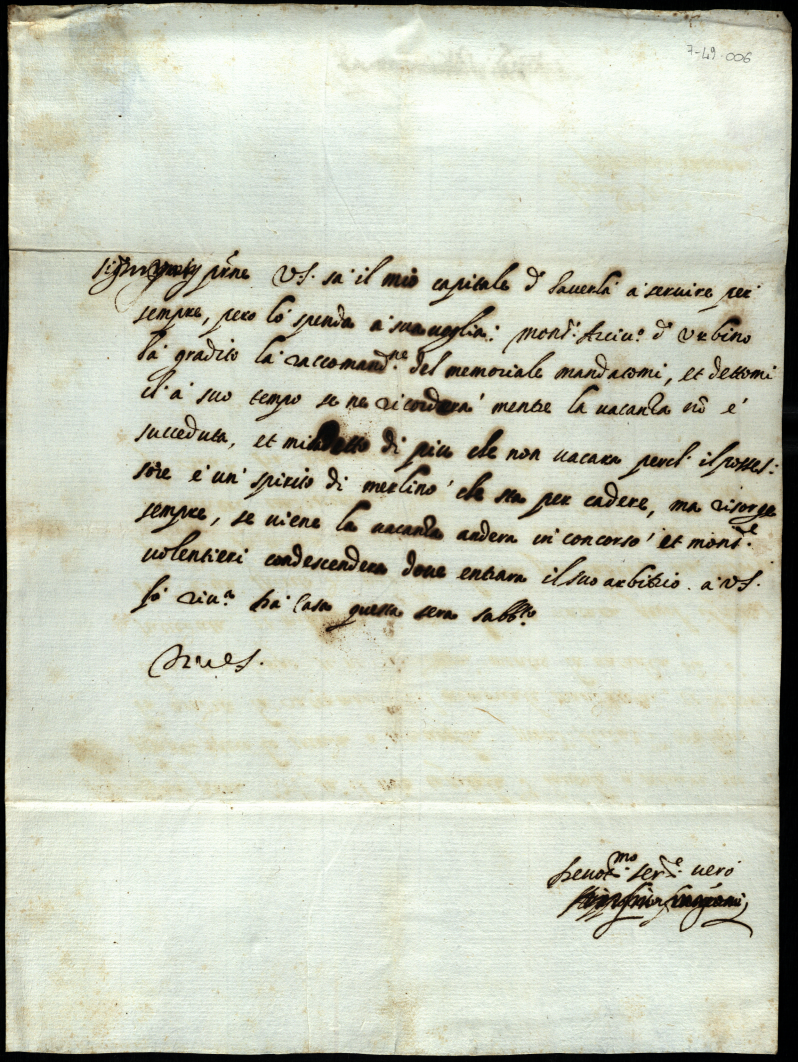 7-49-006
prne V.S. sà il mio capitale d' haverla à servire per
sempre, pero lo spenda à sua voglia: monsr. Arcivo. d' Urbino
hà gradito la raccomandne. del memoriale mandatomi, et dettomi
ch' à suo tempo se ne ricorderà mentre la vacanza nõ é
succeduta, et mi detto di piu che non vacara perche il posses:
sore é un' spirito di merlino che sta per cadere, ma risorge
sempre, se viene la vacanza andera in concorso et monsre.
volentieri condescendera dove entrara il suo arbitrio. à V.S.
fò riva. hà Casa questa sera sabbto.
devotmo. sere. vero